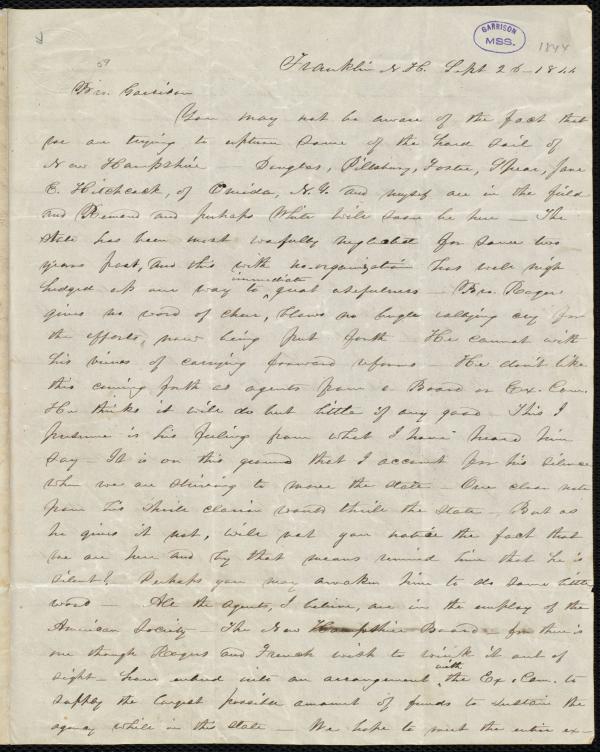 GARRISON
MSS.
1844
59
Franklin N. H. Sept 26 - 1844
Bro. Garrison
You may not be aware of the fact that
we are trying to upturn some of the hard soil of
New Hampshire - Douglas, Pillsbury, Foster, Spear, Jane
E. Hitchcock, of Oneida, N. Y. and myself are in the field
and Remond and perhaps White will soon be here - The
State has been most wofully neglected for some two
years past, and this with no-organization has well nigh
hedged up our way to immediate great usefulness - Bro. Rogers
gives no word of cheer, blows no bugle rallying cry for
the efforts, now being put forth - He cannot with
his views of carrying forward reforms - He don't like
this coming forth as agents from a Board or Ex. Com.
He thinks it will do but little if any good. This I
presume is his feelings from what I have heard him
say - It is on this ground that I account for his silence
when we are striving to move the state - One clear note
from his shrill clarion would thrill the state - But as
he gives it not, will not you notice the fact that
we are here and by that means remind him that he is
silent? Perhaps you may awaken him to do some little
word - All the agents, I believe, are in the employ of the
American Society - The New Hampshire Board - for there is
one though Rogers and French wish to wink it out of
sight - have entered into an arrangement with the Ex. Com. to
supply the largest possible amount of funds to sustain the
agency while in the state - We hope to meet the entire ex-